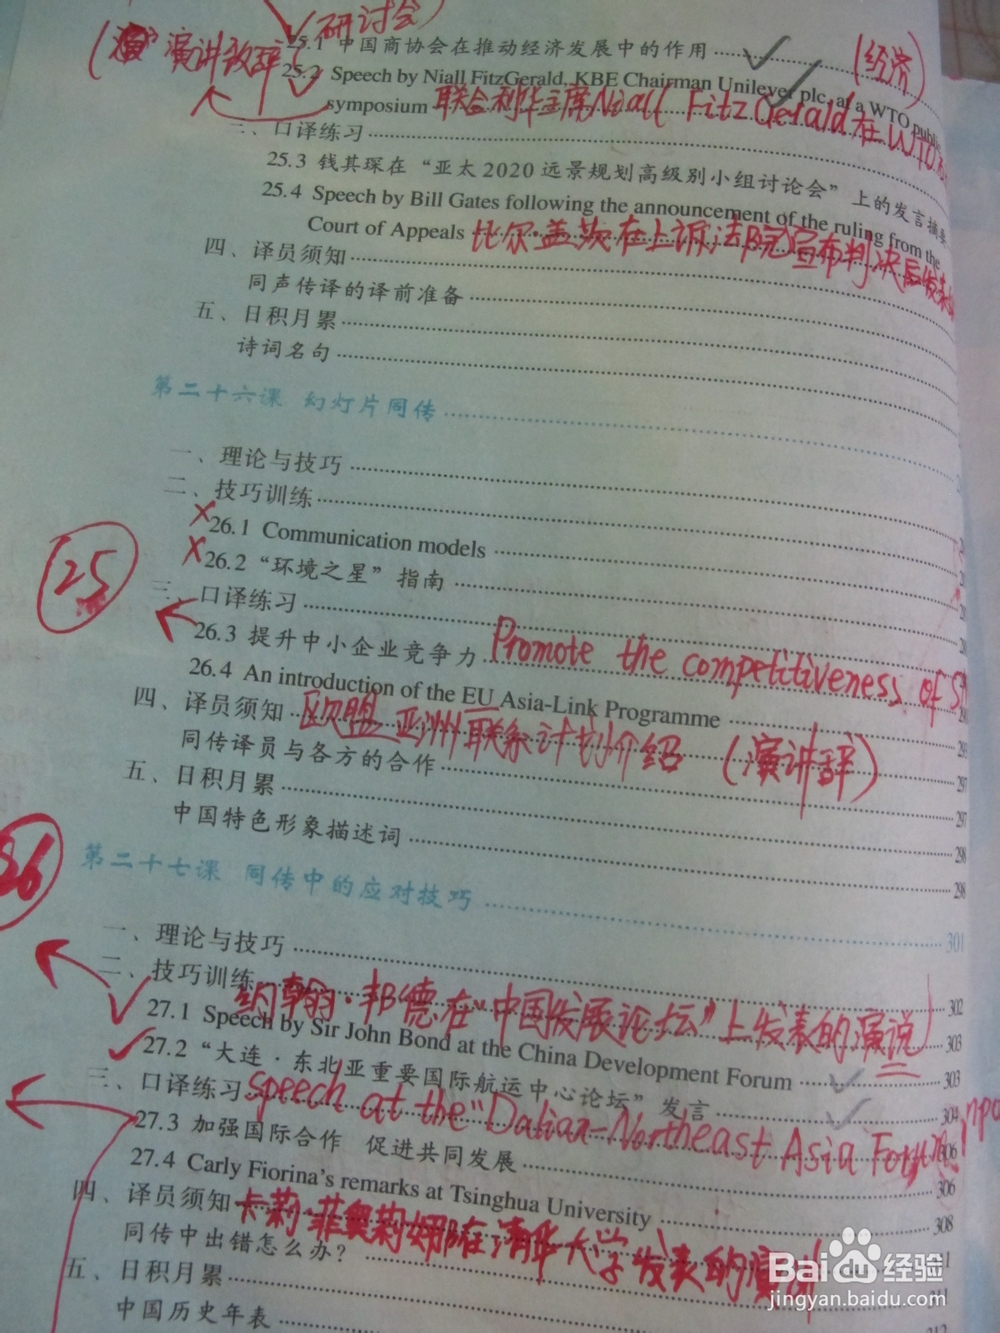 (研讨会)
(演讲致辞)
25.1 中国商协会在推动经济发展中的作用
(经济)
25.2 Speech by Niall FitzGerald, KBE Chairman Unilever plc, at a WTO public
symposium
联合利华主席Niall FitzGerald在WTO
三、口译练习
25.3 钱其琛在“亚太2020远景规划高级别小组讨论会”上的发言摘要
25.4 Speech by Bill Gates following the announcement of the ruling from the
Court of Appeals
比尔·盖茨在上诉法院宣布判决后发表
四、译员须知
同声传译的译前准备
五、日积月累
诗词名句
第二十六课 幻灯片同传
一、理论与技巧
二、技巧训练
26.1 Communication models
26.2 “环境之星”指南
25
三、口译练习
26.3 提升中小企业竞争力
Promote the competitiveness of S
26.4 An introduction of the EU Asia-Link Programme
四、译员须知
欧盟亚洲联系计划介绍 (演讲辞)
293
同传译员与各方的合作
297
五、日积月累
297
中国特色形象描述词
298
298
26
第二十七课 同传中的应对技巧
301
一、理论与技巧
302
二、技巧训练
约翰·邦德在“中国发展论坛”上发表的演说
303
27.1 Speech by Sir John Bond at the China Development Forum
303
27.2 “大连·东北亚重要国际航运中心论坛”发言
304
三、口译练习
speech at the "Dalian-Northeast Asia Forum
306
27.3 加强国际合作 促进共同发展
306
27.4 Carly Fiorina's remarks at Tsinghua University
308
四、译员须知
卡莉·菲奥莉娜在清华大学发表的演讲
同传中出错怎么办?
311
五、日积月累
311
中国历史年表
312
Baidu 经验
jingyan.baidu.com